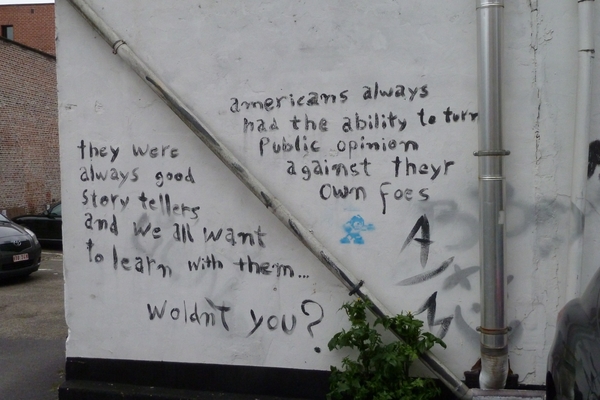 americans always
had the ability to turn
Public opinion
against theyr
own foes
they were
always good
story tellers
and we all want
to learn with them...
woldn't you?